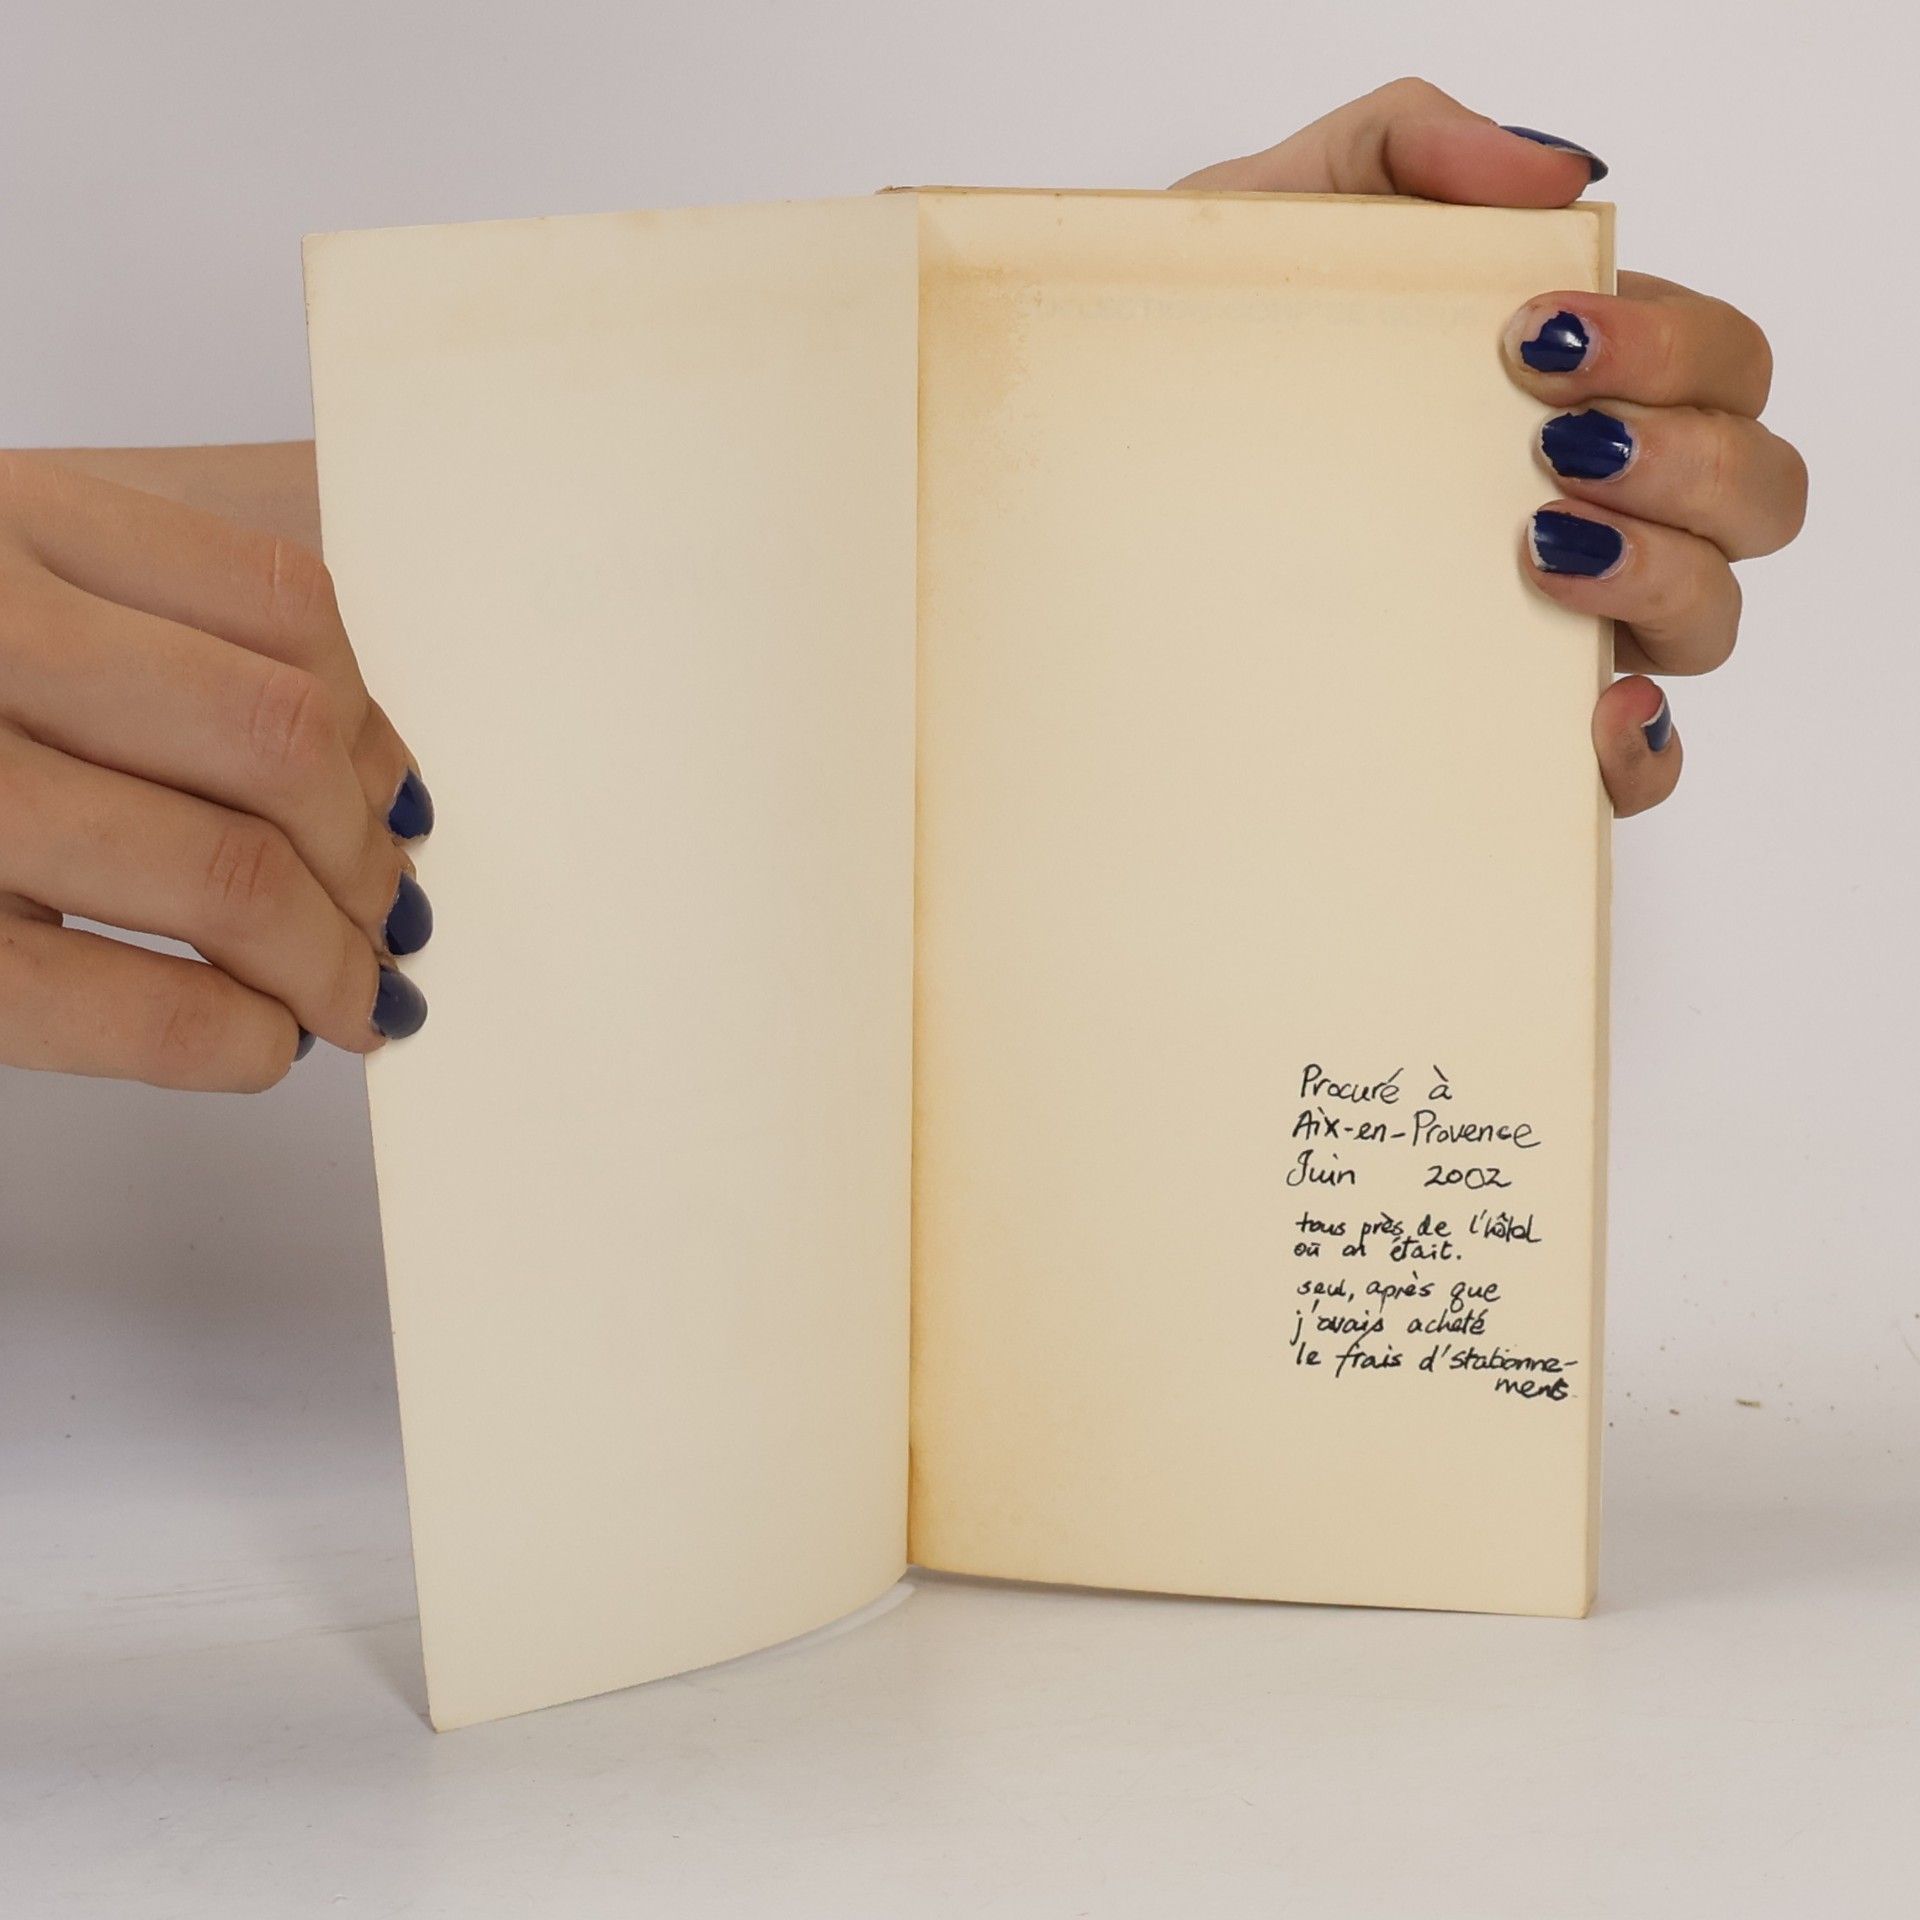 Procuré à
Aix-en-Provence
Juin 2002
tous près de l'hôtel
où on était.
seul, après que
j'avais acheté
le frais d'stationne-
ments